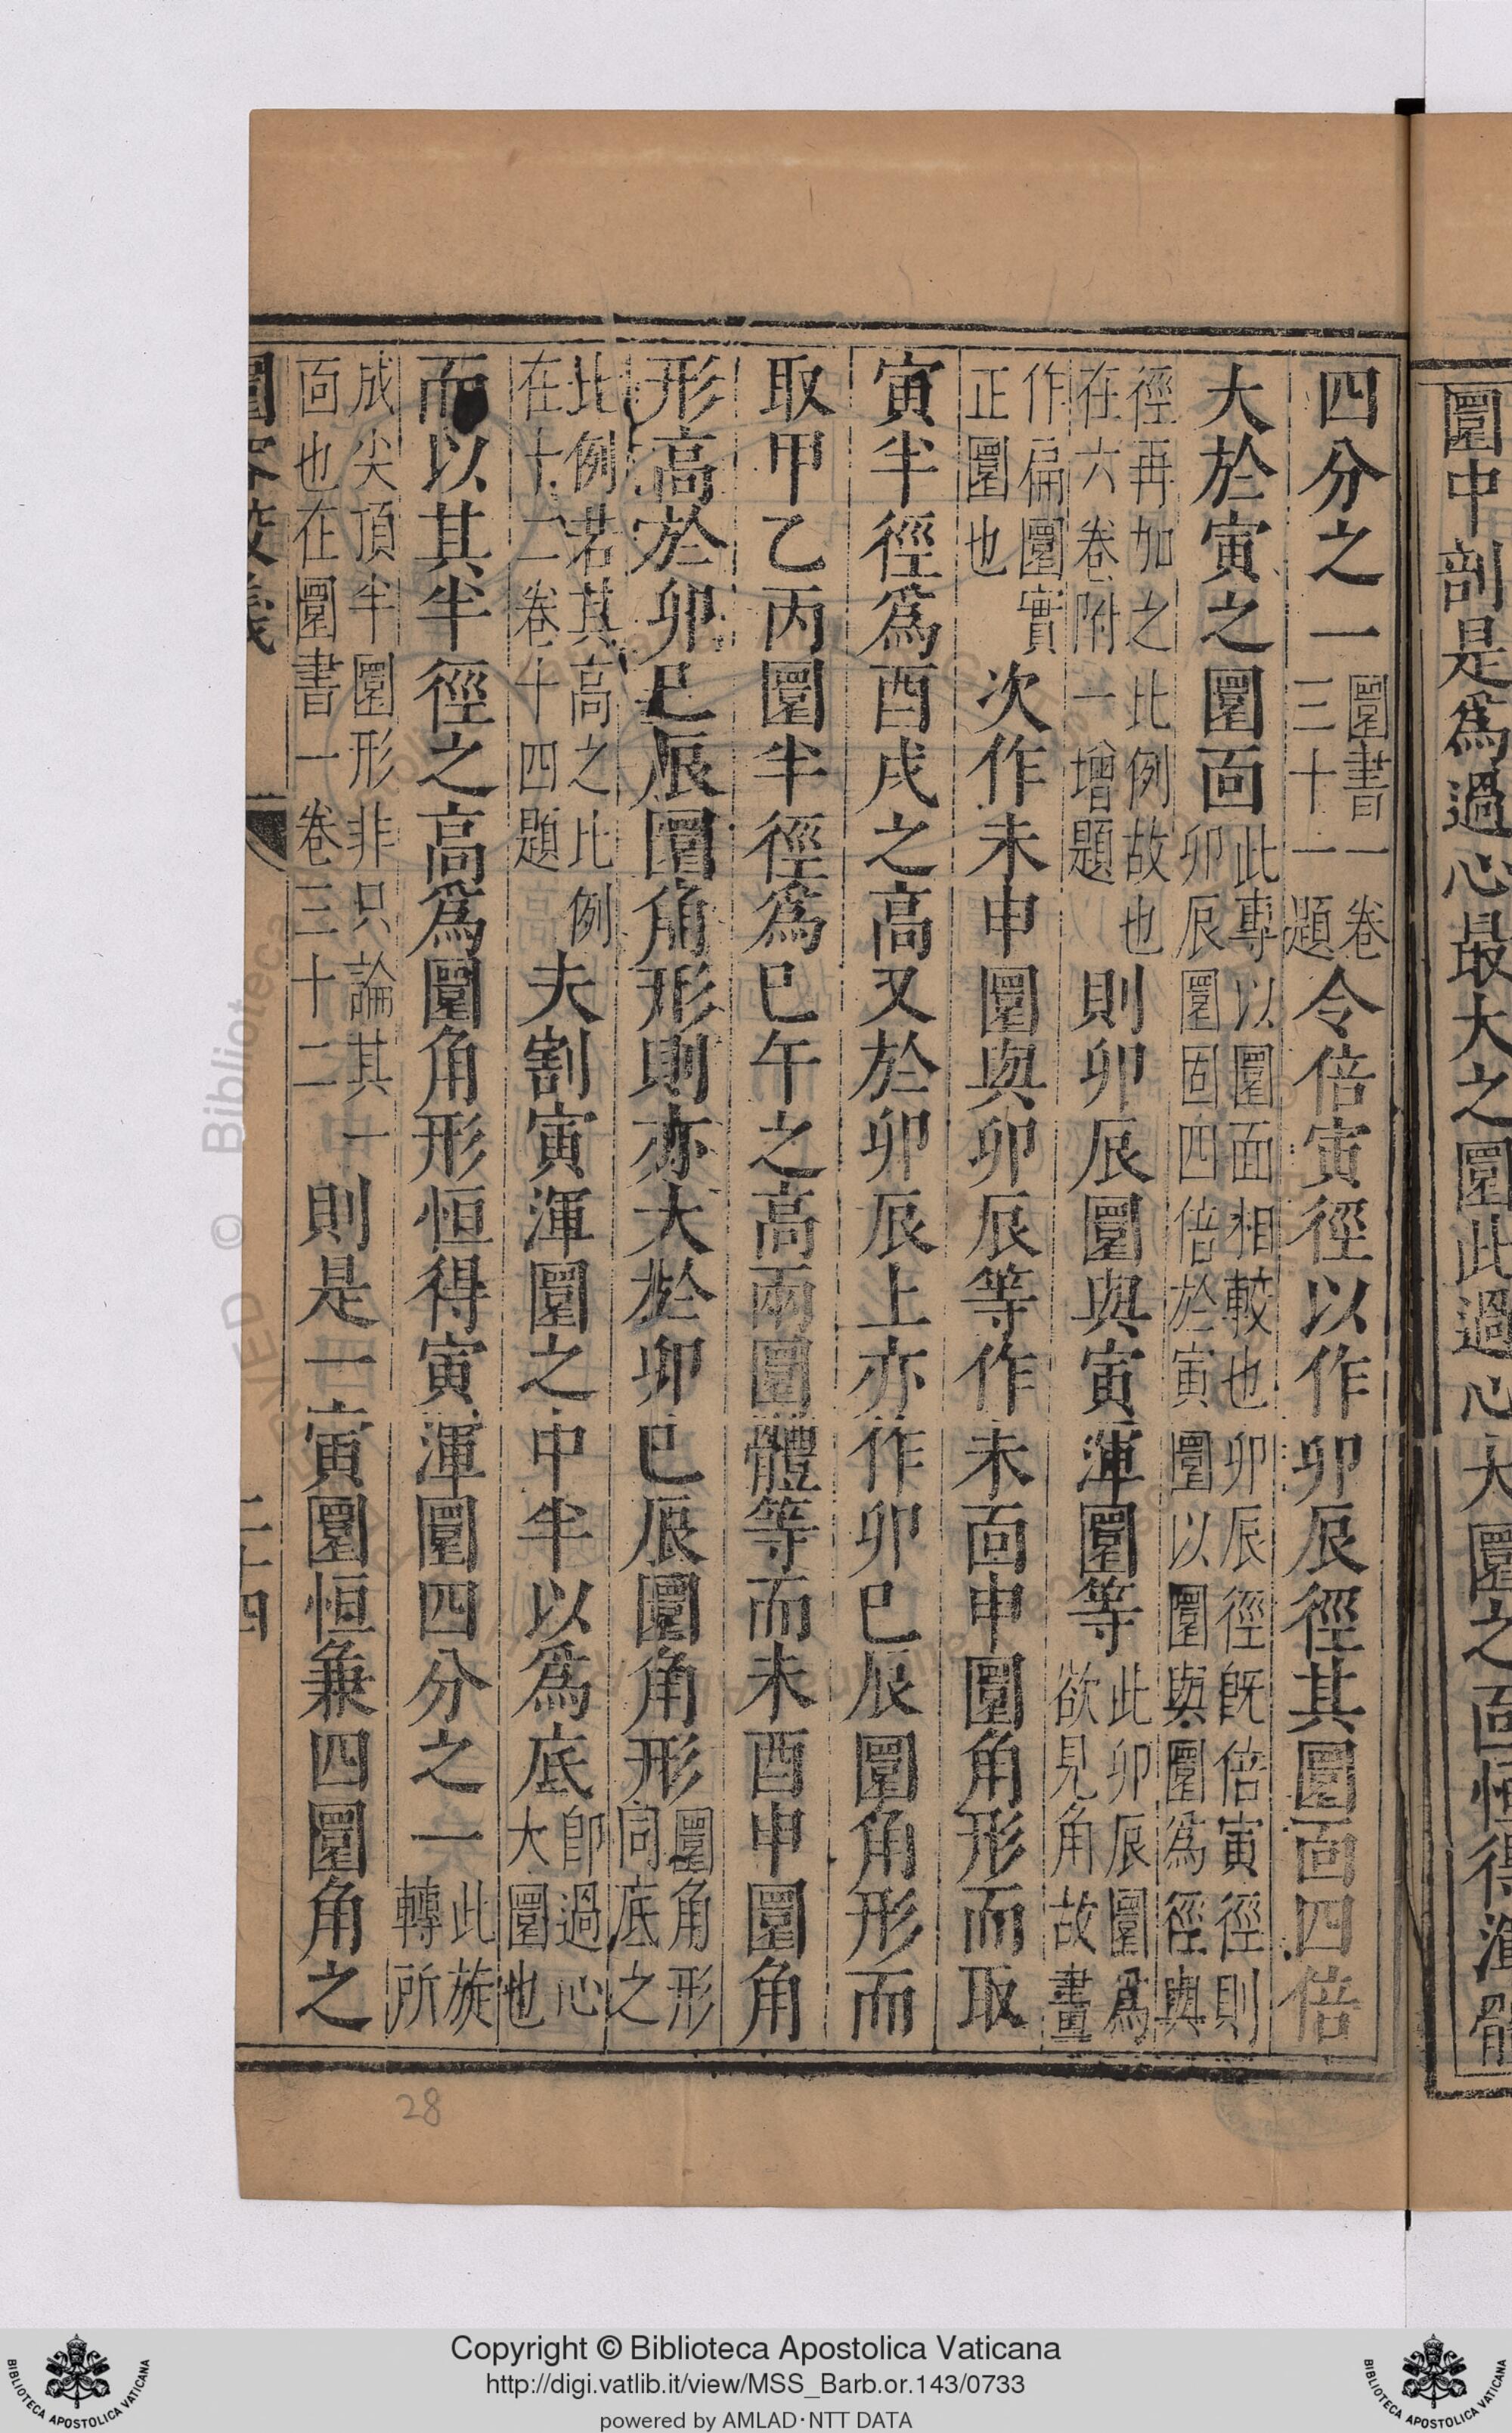 圜中剖是為過心最大之圜此過心大圜之靣恒得渾體
四分之一圜書一卷三十一題令倍寅徑以作卯辰徑其圜靣四倍
大於寅之圜靣此專以圜面相較也卯辰徑既倍寅徑則卯辰圜固四倍於寅圜以圜與圜為徑與
徑再加之比例故也在六卷附一增題則卯辰圜與寅渾圜等此卯辰圜為欲見角故畫
作扁圜實正圜也次作未申圜與卯辰等作未靣申圜角形而取
寅半徑為酉戌之高又於卯辰上亦作卯巳辰圜角形而
取甲乙丙圜半徑為巳午之高兩圜體等而未酉申圜角
形高於卯巳辰圜角形則亦大於卯巳辰圜角形圜角形同底之
比例若其高之比例在十二卷十四題夫割寅渾圜之中半以為底即過心大圜也
而以其半徑之高為圜角形恒得寅渾圜四分之一此旋轉所
成尖頂半圜形非只論其一靣也在圜書一卷三十二則是一寅圜恒兼四圜角之
圜容較義
二十四
28
Copyright © Biblioteca Apostolica Vaticana
http://digi.vatlib.it/view/MSS_Barb.or.143/0733
powered by AMLAD·NTT DATA
BIBLIOTECA APOSTOLICA VATICANA
BIBLIOTECA APOSTOLICA VATICANA